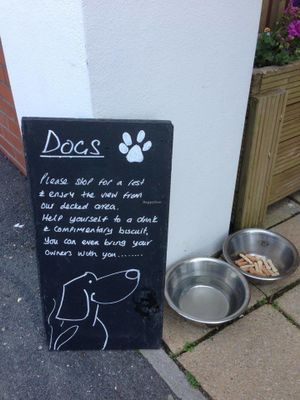 DOGS
Please stop for a rest
& enjoy the view from
our decked area.
Help yourself to a drink
& complimentary biscuit,
you can even bring your
owners with you........